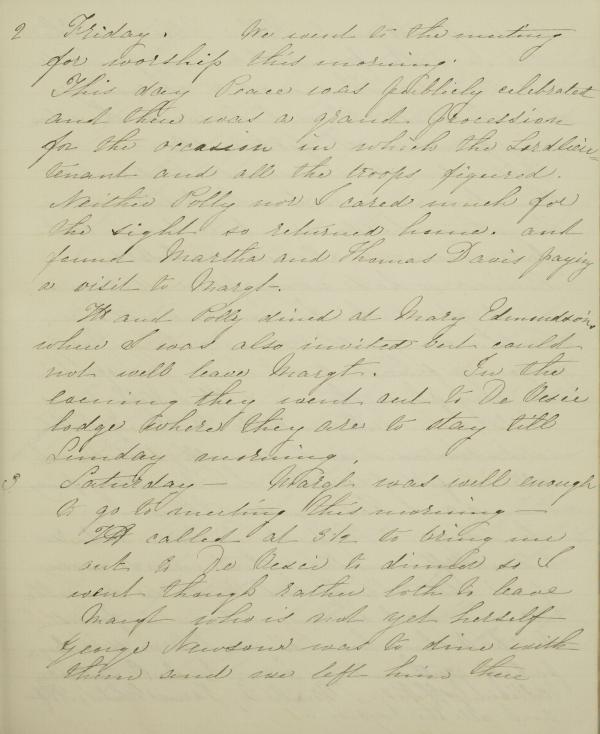 2 Friday. We went to the meeting
for worship this morning.
This day Peace was publicly celebrated
and there was a grand procession
for the occasion in which the Lordlieu=
tenant and all the troops figured.
Neither Polly nor I cared much for
the sight so returned home. and
found Martha and Thomas Davis paying
a visit to Margt.
and Polly dined at Mary Edmundson's,
where I was also invited but could
not well leave Margt. In the
evening they went out to De Vesci
lodge where they are to stay till
Sunday morning.
3 Saturday — Margt was well enough
to go to meeting this morning —
called at 3½ to bring me
out to De Vesci to dinner so I
went though rather loth to leave
Margt who is not yet herself
George Newsom was to dine with
them and we left him there